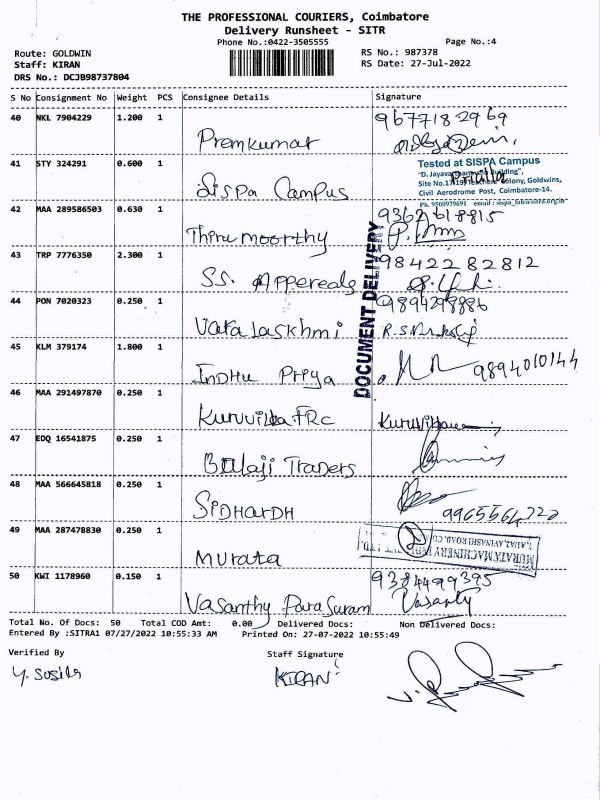 THE PROFESSIONAL COURIERS, Coimbatore
Delivery Runsheet - SITR
Phone No.:0422-3505555 Page No.:4
Route: GOLDWIN RS No.: 987378
Staff: KIRAN RS Date: 27-Jul-2022
DRS No.: DCJB98737804
S No Consignment No Weight PCS Consignee Details Signature
40 NKL 7904229 1.200 1 Premkumar 9677182969
41 STY 324291 0.600 1 Sispa Campus
Tested at SISPA Campus
Civil Aerodrome Post, Coimbatore-14.
42 MAA 289586503 0.630 1 Thirumoorthy 9362618815
43 TRP 7776350 2.300 1 SS. Appereals 9842282812
DOCUMENT DELIVERY
44 PON 7020323 0.250 1 Varalaskhmi 9894298886
45 KLM 379174 1.800 1 Indhu Priya 9894010144
46 MAA 291497870 0.250 1 Kuruvilla FRC
47 EDQ 16541875 0.250 1 Balaji Traders
48 MAA 566645818 0.250 1 SIDHARDH 9965564720
49 MAA 287478830 0.250 1 Murata
MURATA MACHINERY
50 KWI 1178960 0.150 1 Vasanthy Parasuram 9384499395
Total No. Of Docs: 50 Total COD Amt: 0.00 Delivered Docs: Non Delivered Docs:
Entered By :SITRA1 07/27/2022 10:55:33 AM Printed On: 27-07-2022 10:55:49
Verified By Staff Signature
Y. Susila KIRAN